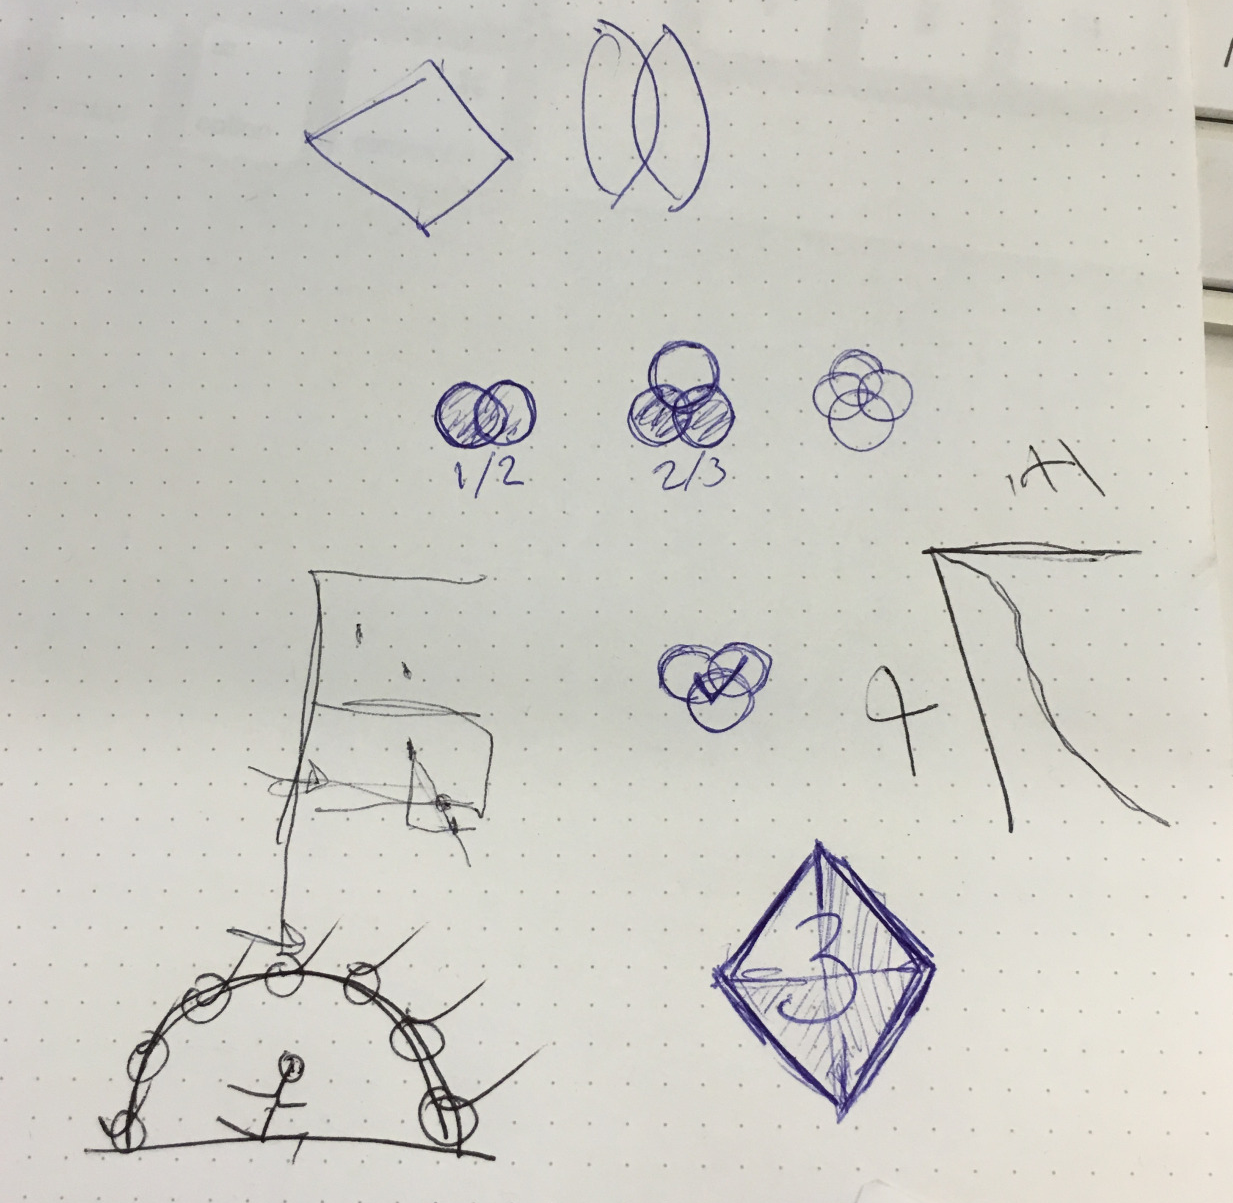 1/2
2/3
3